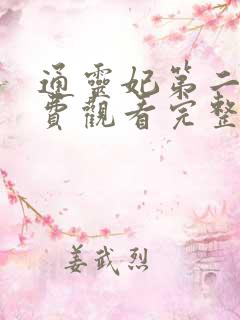 通靈妃第二
費觀看完整
姜武烈